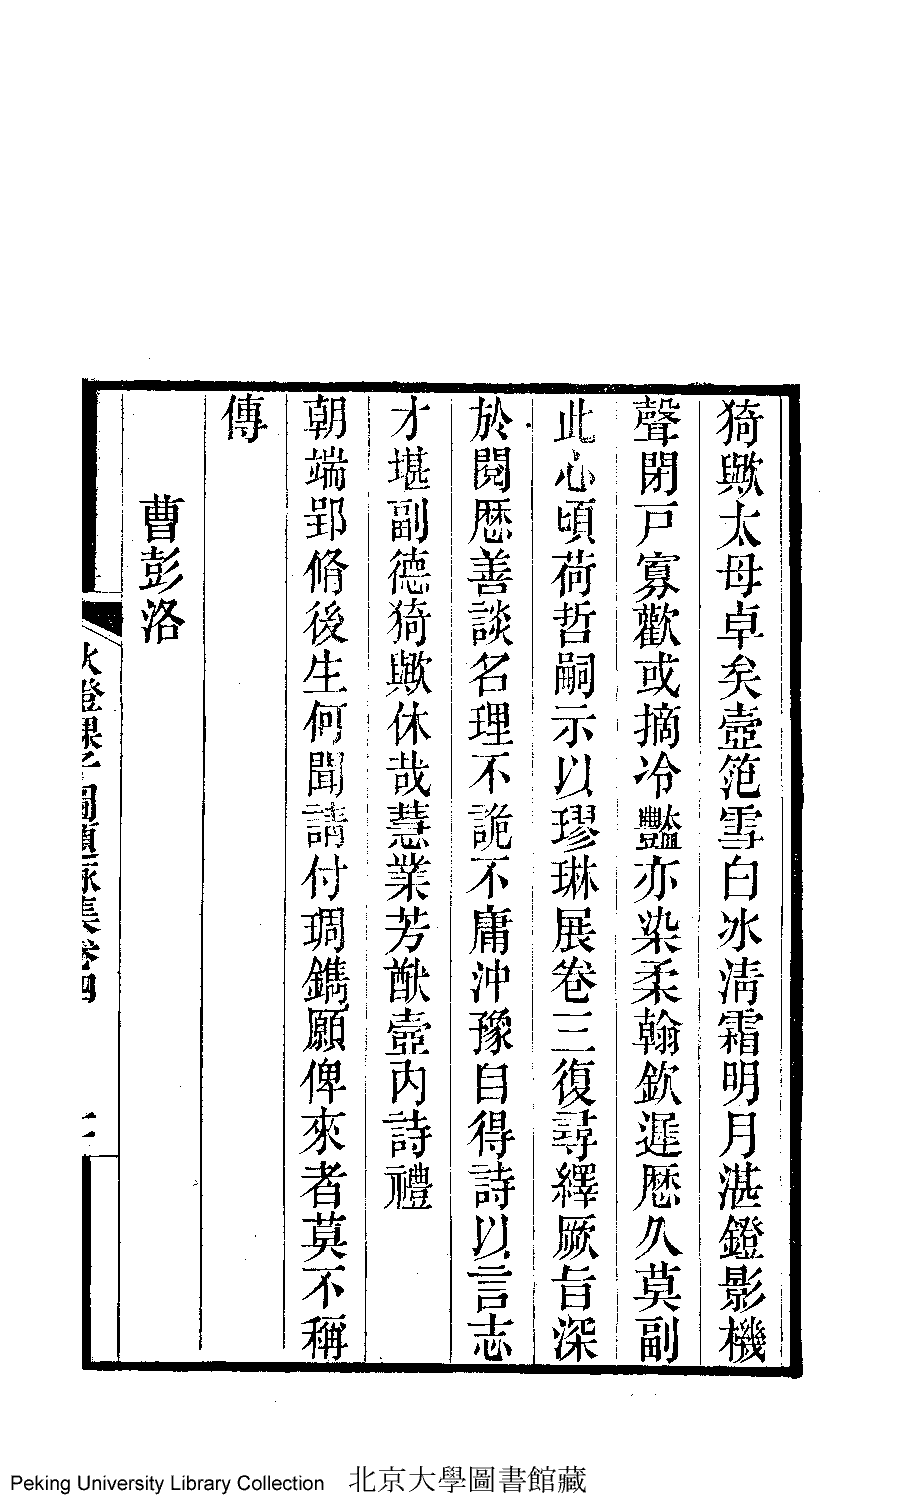 猗歟太母卓矣壼范雪白冰淸霜明月湛鐙影機
聲閉戸寡歡或摘冷豔亦染柔翰欽遲歴久莫副
此心頃荷哲嗣示以璆琳展卷三復尋繹厥旨深
於閱歴善談名理不詭不庸沖豫自得詩以言志
才堪副德猗歟休哉慧業芳猷壼内詩禮
朝端郢脩後生何聞請付琱鐫願俾來者莫不稱
傳
曹彭洛
秋鐙課子圖題詠集卷四
Peking University Library Collection 北京大學圖書館藏